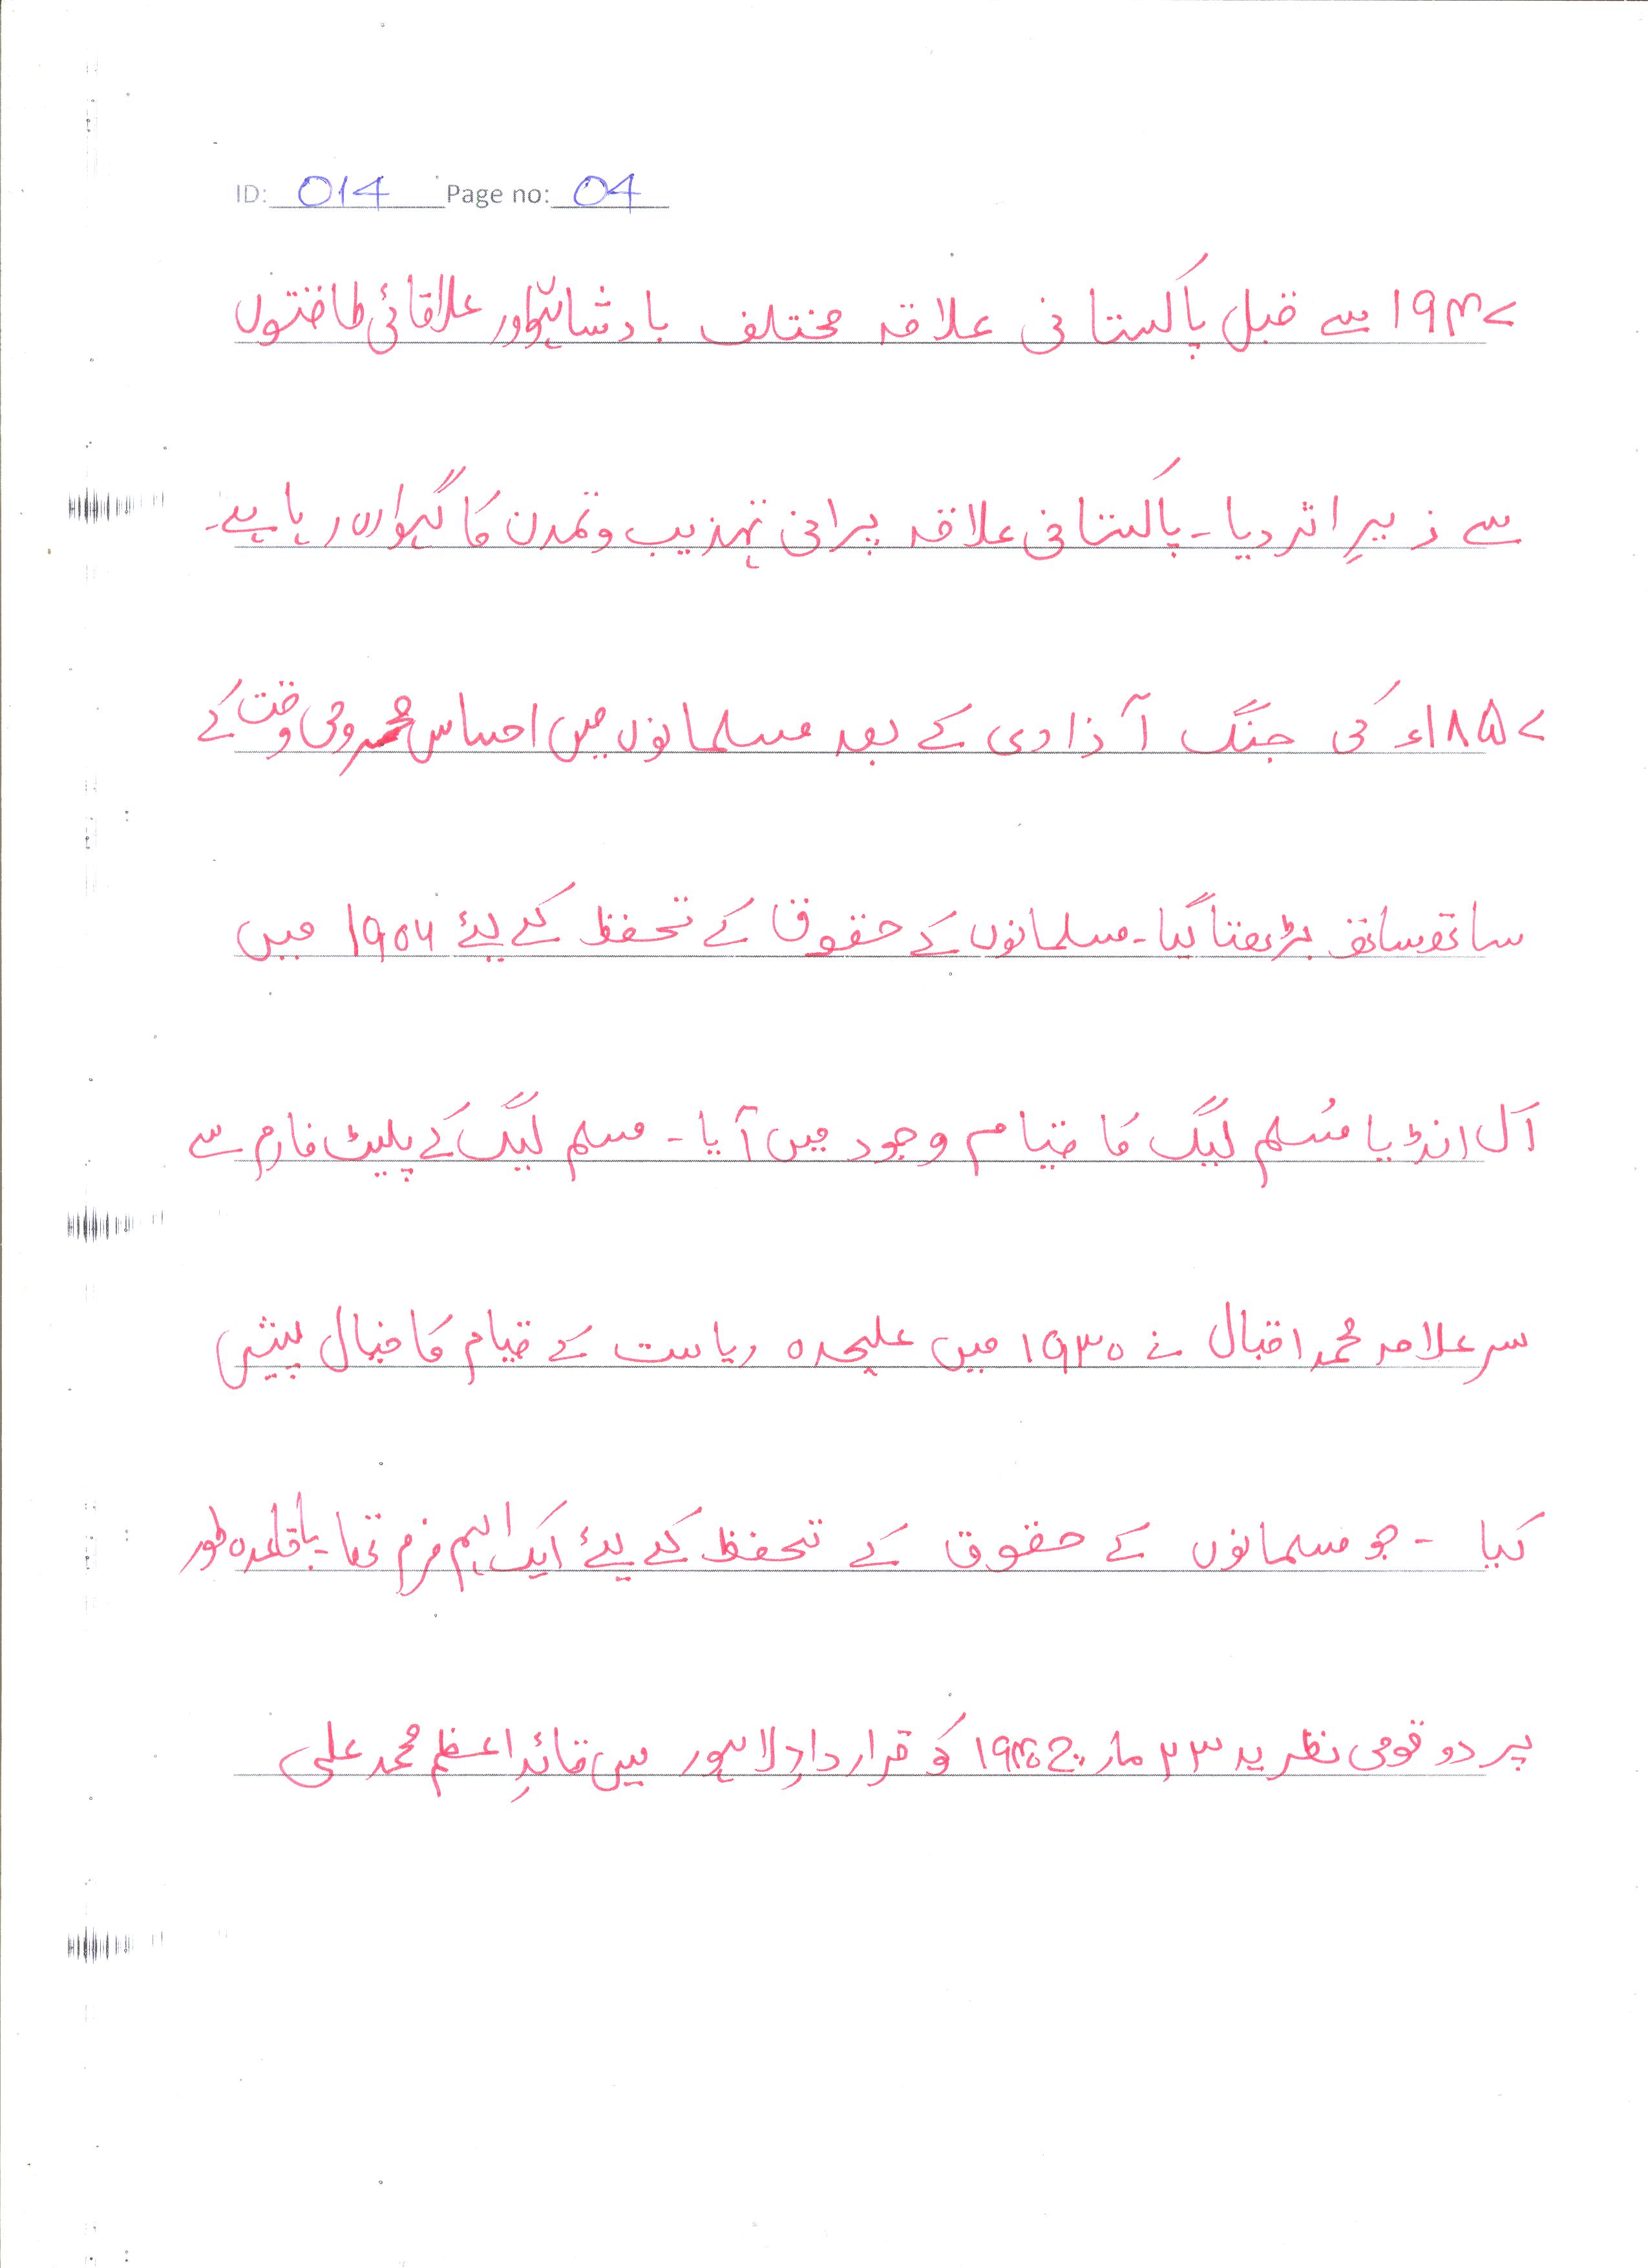 ID: 014 Page no: 04
۱۹۴۷ سے قبل پاکستانی علاقہ مختلف بادشاہوں اور علاقائی طاقتوں
سے زیرِ اثر دیا۔ پاکستانی علاقہ پرانی تہذیب و تمدن کا گہوارہ رہا ہے۔
۱۸۵۷ء کی جنگ آذادی کے بعد مسلمانوں میں احساس محرومی وقت کے
ساتھ ساتھ بڑھتا گیا۔ مسلمانوں کے حقوق کے تحفظ کے لیئے ۱۹۰۶ میں
آل انڈیا مُسلم لیگ کا قیام وجود میں آیا۔ مسلم لیگ کے پلیٹ فارم سے
سر علامہ محمد اقبال نے ۱۹۳۰ میں علیحدہ ریاست کے قیام کا خیال پیش
کیا ۔ جو مسلمانوں کے حقوق کے تحفظ کے لیئے ایک اہم تھا۔ باقاعدہ طور
پر دو قومی نظریہ ۲۳ مارچ ۱۹۴۰ کو قراردادِ لاہور میں قائدِ اعظم محمد علی